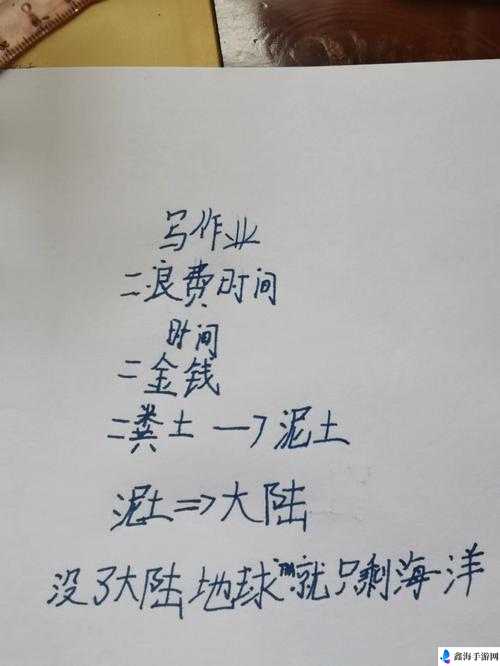 写作业
=浪费时间
时间
=金钱
=粪土→泥土
泥土=>大陆
没了大陆地球就只剩海洋
鑫海手游网